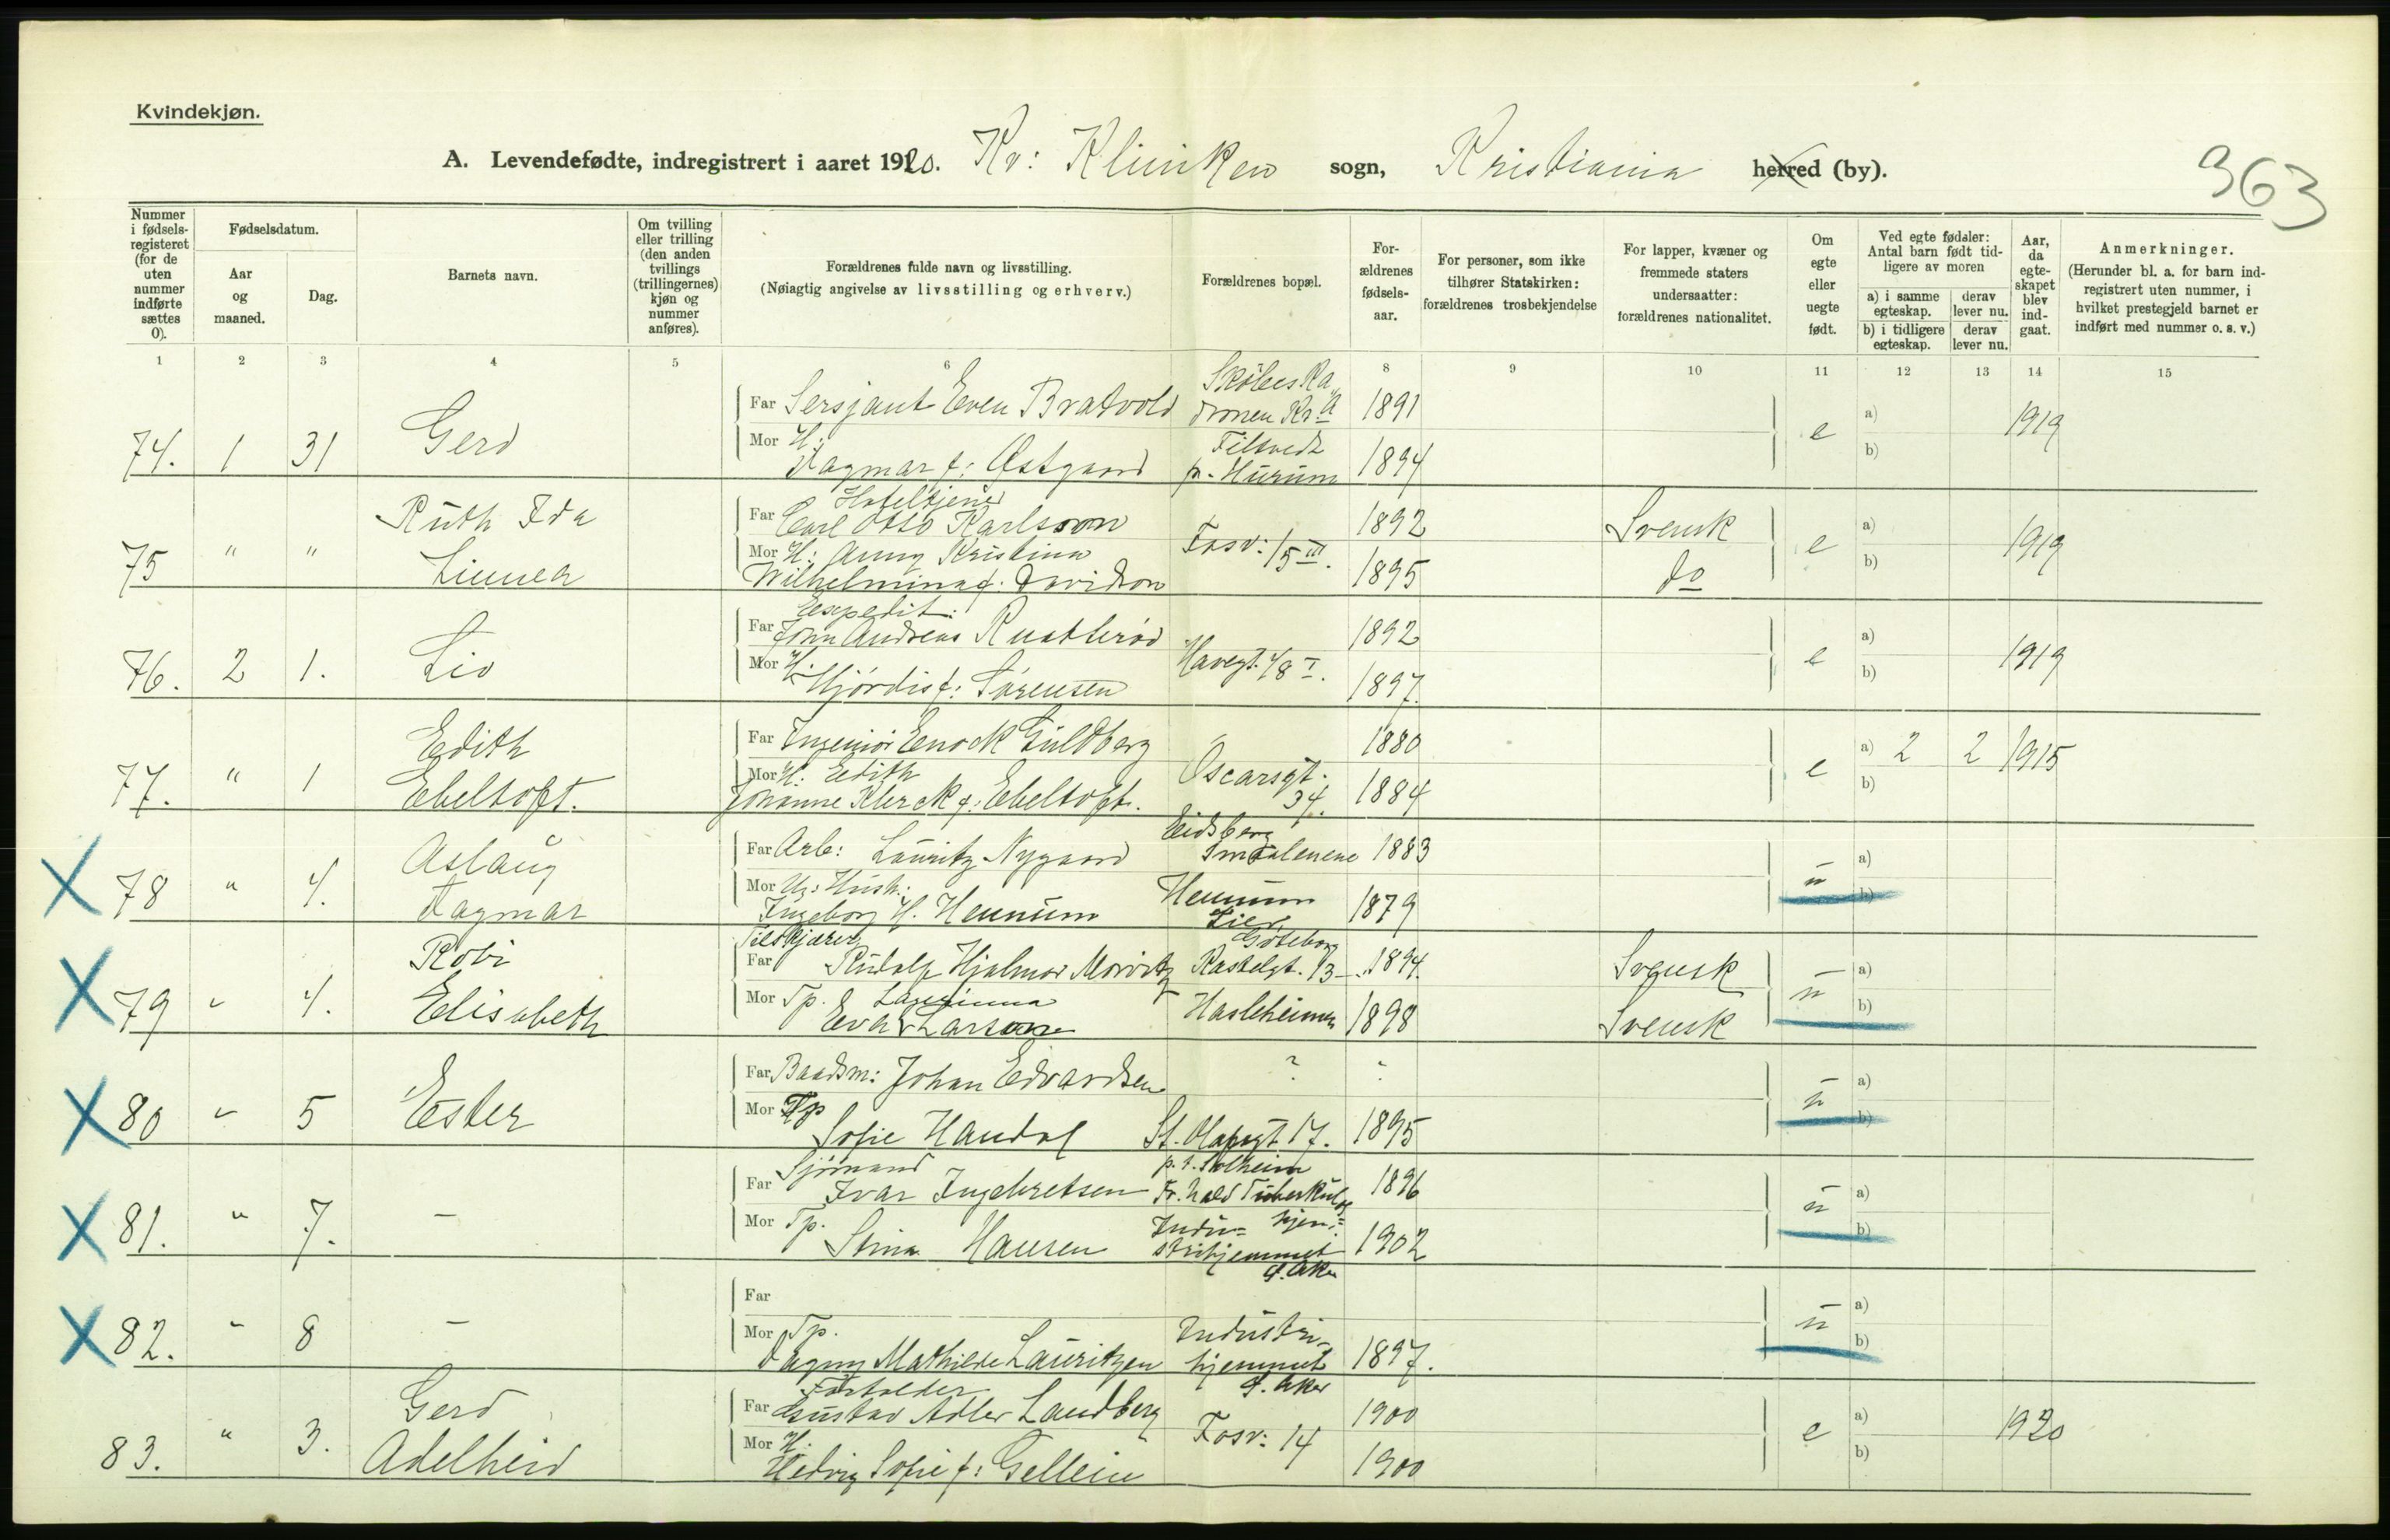 Kvindekjøn.
A. Levendefødte, indregistrert i aaret 1920. Kv: Kliniken sogn, Kristiania herred (by).
363
Nummer i fødsels-registeret (for de uten nummer indførte sættes 0).
Fødselsdatum.
Aar og maaned.
Dag.
Barnets navn.
Om tvilling eller trilling (den anden tvillings (trillingernes) kjøn og nummer anføres).
Forældrenes fulde navn og livsstilling.
(Nøiagtig angivelse av livsstilling og erhverv.)
Forældrenes bopæl.
For-ældrenes fødsels-aar.
For personer, som ikke tilhører Statskirken: forældrenes trosbekjendelse
For lapper, kvæner og fremmede staters undersaatter: forældrenes nationalitet.
Om egte eller uegte født.
Ved egte fødsler: Antal barn født tid-ligere av moren
a) i samme egteskap.
derav lever nu.
b) i tidligere egteskap.
derav lever nu.
Aar, da egte-skapet blev ind-gaat.
Anmerkninger.
(Herunder bl. a. for barn ind-registrert uten nummer, i hvilket prestegjeld barnet er indført med nummer o. s. v.)
1 2 3 4 5 6 8 9 10 11 12 13 14 15
74. 1 31 Gerd
Far Sersjant Even Bratvold 1891
Mor H: Dagmar f: Østgaard Filtvedt p. Hurum 1894
e a) b) 1919
75 " " Ruth Ida Linnea
Far Hoteltjener Carl Otto Karlsson 1892 Svensk
Mor H: Anny Kristina Wilhelmina f. Davidson Fosv: 15 III. 1895 do
e a) b) 1919
76. 2 1. Liv
Far Expedit. John Andreas Rustterød 1892
Mor H. Hjørdis f: Sørensen Havegt. 4/8 I. 1897.
e a) b) 1919
77. " 1 Edith Ebeltoft.
Far Ingeniør Enock Guldberg 1880
Mor H: Edith Johanne Klerck f: Ebeltoft. Oscarsgt. 34. 1884
e a) 2 2 b) 1915
X 78 " 4. Aslaug Dagmar
Far Arb: Lauritz Nygaard Eidsberg Smaalenene 1883
Mor Ug: Hush.: Ingeborg H. Hennum Hennum Lier 1879
u a) b)
X 79 " 4. Robi Elisabeth
Far Tilskjærer Rudolf Hjalmar Moritz Göteborg Kastelgt. 13 1894. Svensk
Mor Tp. Eva Larson Hasleheimen 1898 Svensk
u a) b)
X 80 " 5 Ester
Far Baadsm: Johan Edvardsen ? -
Mor Tp Sofie Handal St. Olafsgt 17. 1895
u a) b)
X 81. " 7. -
Far Sjømand Ivar Ingebretsen p. t. Solheim 1896
Mor Tp. Stina Hansen Indu=strihjemmet Ø. Aker 1902
u a) b)
X 82. " 8 -
Far
Mor Tp. Dagny Mathilde Lauritzen Industri-hjemmet Ø. Aker 1897.
u a) b)
83. " 3. Gerd Adelheid
Far Gustav Adler Landberg 1900
Mor H. Hedvig Sofie f: Gellein Fosv: 14 1900
e a) b) 1920